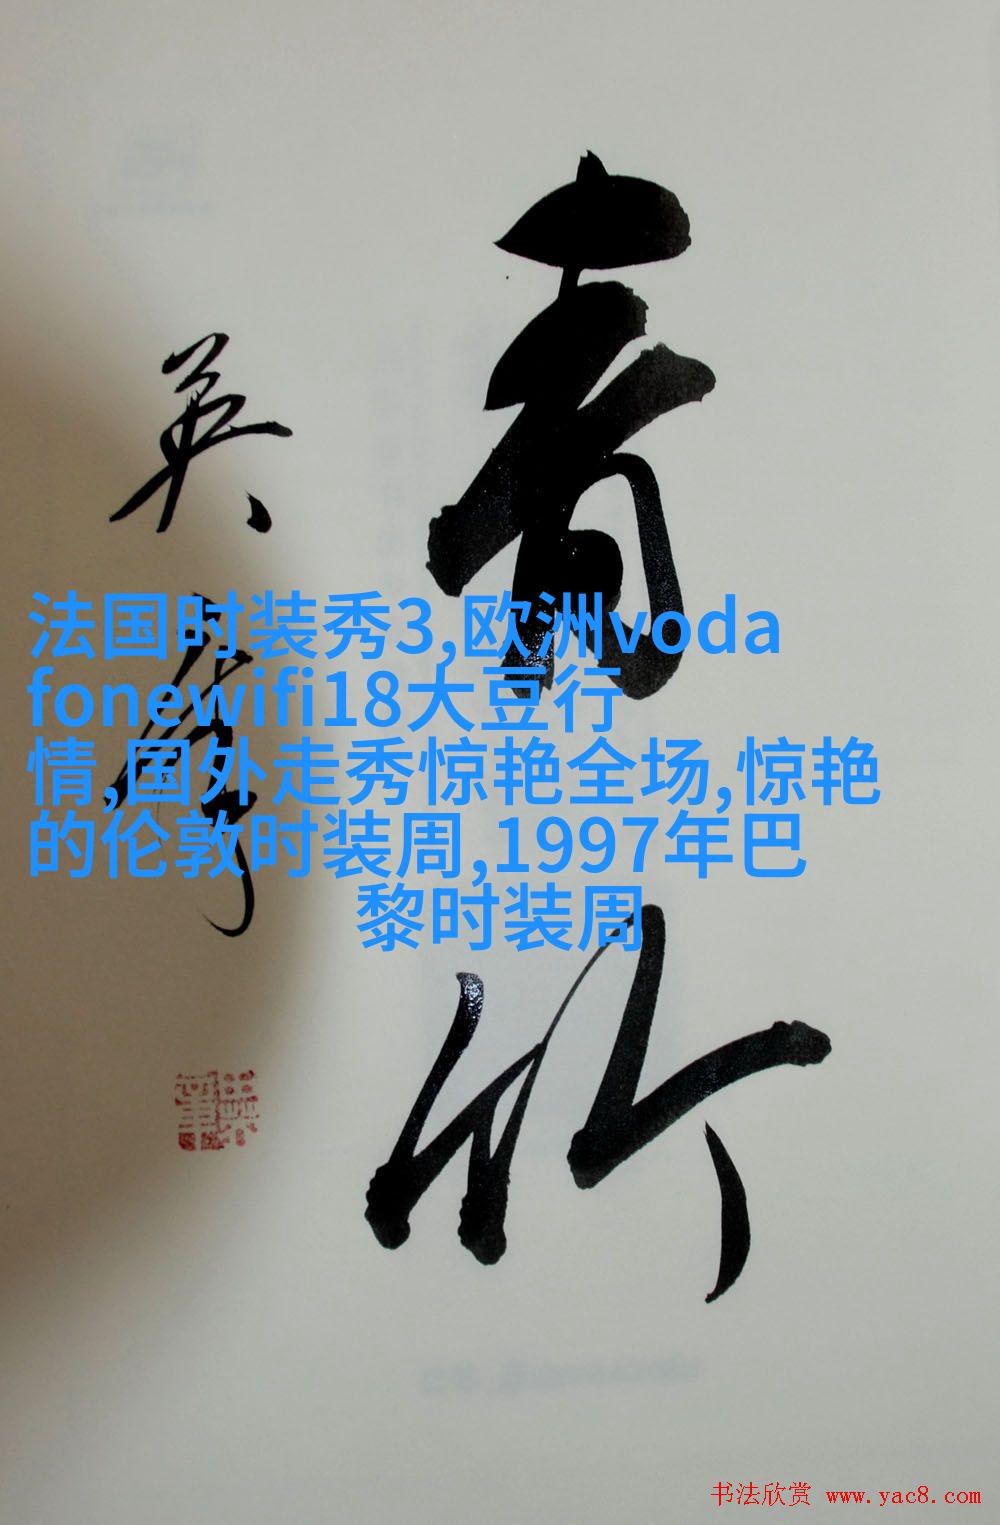 青竹
英年
法国时装秀3,欧洲voda
fonewifi18大豆行
情,国外走秀惊艳全场,惊艳
的伦敦时装周,1997年巴
黎时装周
书法欣赏 www.yac8.com